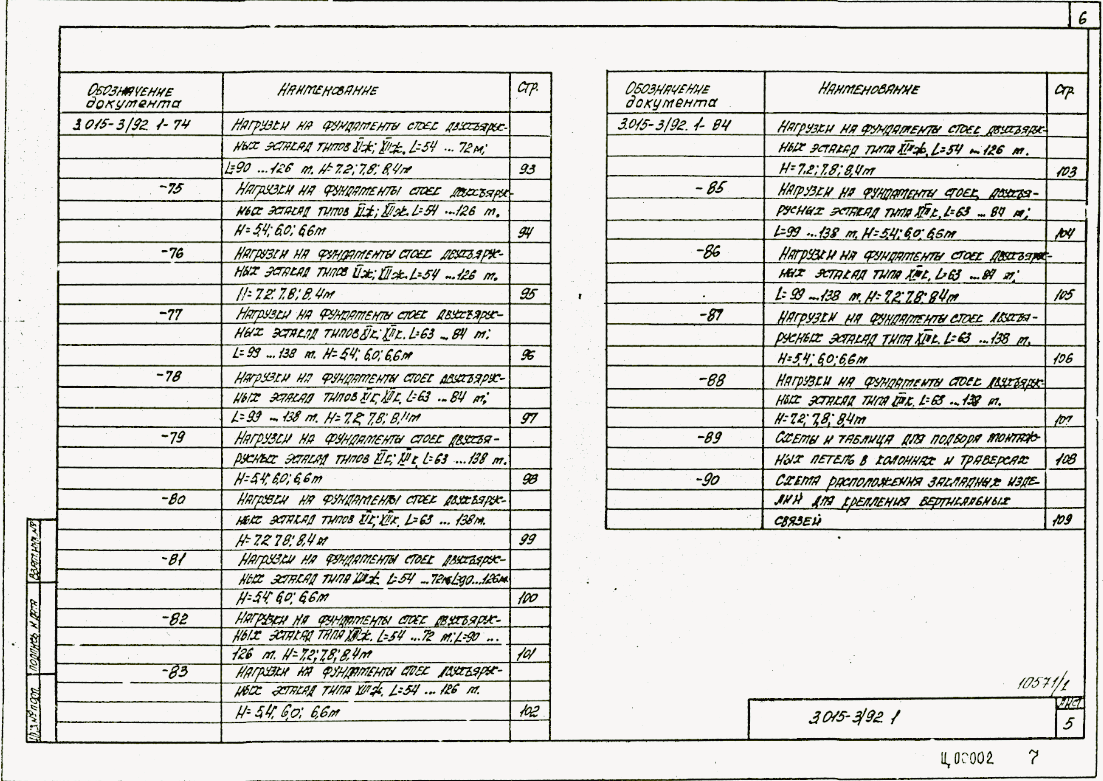 6
Обозначение документа
Наименование
Стр.
3.015-3/92. 1-74
Нагрузки на фундаменты стоек двухъярус-
ных эстакад типов XIж; XIIж, L=54 ... 72 м;
L=90 ... 126 m. H=7,2; 7,8; 8,4m 93
-75 Нагрузки на фундаменты стоек двухъярус-
ных эстакад типов XIж; XIIж. L=54 ...126 m.
H=5,4; 6,0; 6,6m 94
-76 Нагрузки на фундаменты стоек двухъярус-
ных эстакад типов XIж; XIIж. L=54 ...126 m.
H=7,2; 7,8; 8,4m 95
-77 Нагрузки на фундаменты стоек двухъярус-
ных эстакад типов XIк; XIIк. L=63 ... 84 m;
L=99 ...138 m. H=5,4; 6,0; 6,6m 96
-78 Нагрузки на фундаменты стоек двухъярус-
ных эстакад типов XIк, XIIк. L=63 ... 84 m;
L=99 ...138 m. H=7,2; 7,8; 8,4m 97
-79 Нагрузки на фундаменты стоек двухъя-
русных эстакад типов XIк; XIIк, L=63 ...138 m.
H=5,4; 6,0; 6,6m 98
-80 Нагрузки на фундаменты стоек двухъярус-
ных эстакад типов XIк; XIIк. L=63 ... 138m.
H=7,2 7,8; 8,4m 99
-81 Нагрузки на фундаменты стоек двухъярус-
ных эстакад типа XIIIж. L=54 ...72m; L=90...126m.
H=5,4; 6,0; 6,6m 100
-82 Нагрузки на фундаменты стоек двухъярус-
ных эстакад типа XIIIж. L=54 ...72 m; L=90 ...
126 m. H=7,2; 7,8; 8,4m 101
-83 Нагрузки на фундаменты стоек двухъярус-
ных эстакад типа XIIIж, L=54 ... 126 m.
H=5,4; 6,0; 6,6m 102
Обозначение документа
Наименование
Стр.
3.015-3/92. 1-84 Нагрузки на фундаменты стоек двухъярус-
ных эстакад типа XIIIж, L=54 ...126 m.
H=7,2; 7,8; 8,4m 103
-85 Нагрузки на фундаменты стоек двухъя-
русных эстакад типа XIIIк, L=63 ... 84 m;
L=99 ...138 m, H=5,4; 6,0; 6,6m 104
-86 Нагрузки на фундаменты стоек двухъярус-
ных эстакад типа XIIIк, L=63 ...84 m;
L=99 ...138 m. H=7,2; 7,8; 8,4m 105
-87 Нагрузки на фундаменты стоек двухъя-
русных эстакад типа XIIIк. L=63 ...138 m.
H=5,4; 6,0; 6,6m 106
-88 Нагрузки на фундаменты стоек двухъярус-
ных эстакад типа XIIIк. L=63...138 m.
H=7,2; 7,8; 8,4m 107
-89 Схемы и таблица для подбора монтаж-
ных петель в колоннах и траверсах 108
-90 Схема расположения закладных изде-
лий для крепления вертикальных
связей 109
Взам.инв.№
Подпись и дата
Инв.№подл.
10571/1
3.015-3/92 1
Лист
5
Ц00002 7